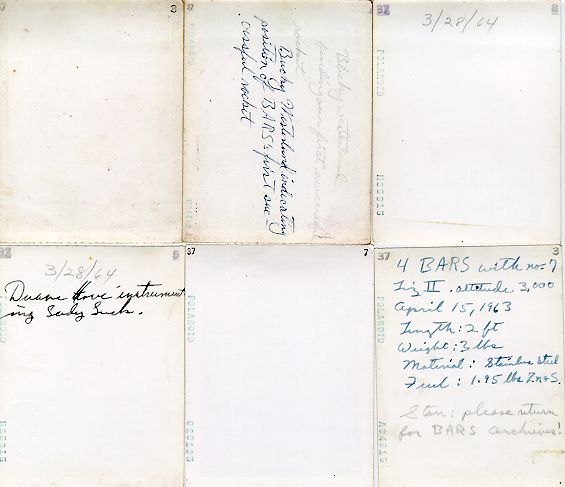 37
3
37
POLAROID
Bucky Westerlund
rocket
Bucky Westerlund indicating
position of BARS's first suc-
cessful rocket
37
8
3/28/64
POLAROID
27
5
3/28/64
Duane Hove instrument
ing Sady Suck.
POLAROID
37
7
POLAROID
37
3
4 BARS with no. 7
Liz II. altitude 3,000
April 15, 1963
Length: 2 ft
Weight: 3 lbs
Material: Stainless Steel
Fuel: 1.95 lbs Zn & S.
Stan: please return
for BARS archives!
POLAROID